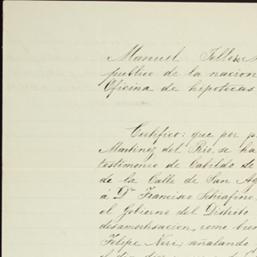 Manuel Telles
publico de la nacion
Oficina de hipotecas
Certifico: que por p
Martinez del Rio, se ha
testimonio de Cabildo se
de la Calle de San Ag
á Dn Francisco Schiafino
el Gobierno del Distrito
desamortisacion, como bien
Felipe Neri, señalando